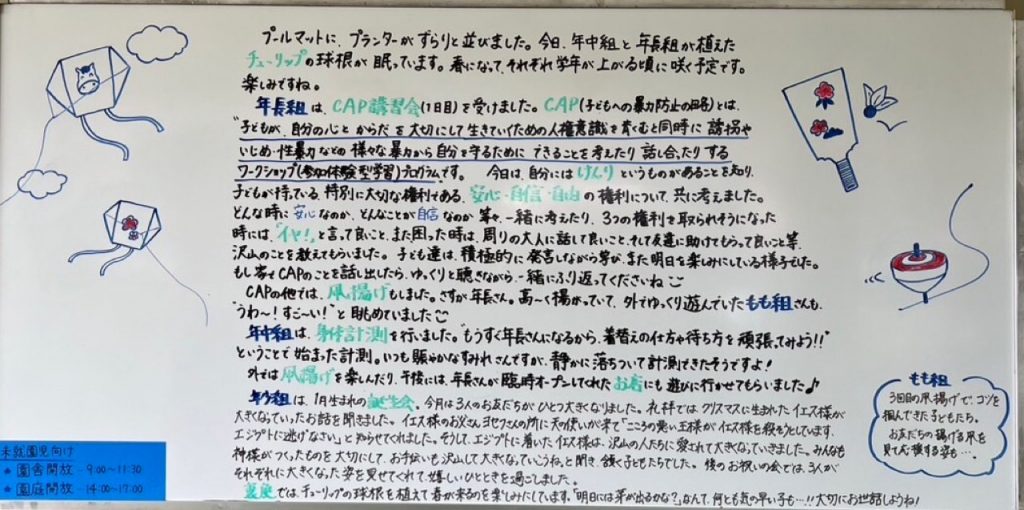 プールマットに、プランターがずらりと並びました。今日、年中組と年長組が植えた
チューリップの球根が眠っています。春になって、それぞれ学年が上がる頃に咲く予定です。
楽しみですね。
年長組は、CAP講習会(1日目)を受けました。CAP(子どもへの暴力防止の略)とは、
"子どもが、自分の心とからだを大切にして生きていくための人権意識を育むと同時に誘拐や
いじめ・性暴力などの様々な暴力から自分を守るためにできることを考えたり話し合ったりする
ワークショップ(参加体験型学習)プログラムです。 今日は、自分にはけんりというものがあることを知り、
子どもが持っている、特別に大切な権利である、安心・自信・自由の権利について、共に考えました。
どんな時に安心なのか、どんなことが自信なのか等々、一緒に考えたり、3つの権利を取られそうになった
時には、「イヤ!」と言って良いこと、また困った時は、周りの大人に話して良いこと、そして友達に助けてもらって良いこと等、
沢山のことを教えてもらいました。子ども達は、積極的に発言しながら学び、また明日を楽しみにしている様子でした。
もし家でCAPのことを話し出したら、ゆっくりと聴きながら一緒にふり返ってくださいね
CAPの他では、凧揚げもしました。さすが年長さん。高〜く揚がっていて、外でゆっくり遊んでいたもも組さんも、
"うわ〜!すご〜い!"と眺めていました
年中組は、身体計測を行いました。"もうすぐ年長さんになるから、着替えの仕方や待ち方を頑張ってみよう!!"
ということで始まった計測。いつも賑やかなすみれさんですが、静かに落ちついて計測できたそうですよ!
外では凧揚げを楽しんだり、午後には、年長さんが臨時オープンしてくれたお店にも遊びに行かせてもらいました♪
年少組は、1月生まれの誕生会。今月は3人のお友だちがひとつ大きくなりました。礼拝では、クリスマスに生まれたイエス様が
大きくなっていったお話を聞きました。イエス様のお父さんヨセフさんの所に天の使いが来て「こころの悪い王様がイエス様を殺そうとしています。
エジプトに逃げなさい」と知らせてくれました。そうして、エジプトに着いたイエス様は、沢山の人たちに愛されて大きくなっていきました。みんなも
神様がつくったものを大切にして、お手伝いも沢山して大きくなっていこうね、と聞き、頷く子どもたちでした。後のお祝いの会では、3人が
それぞれに大きくなった姿を見せてくれて、嬉しいひとときを過ごしました。
裏庭では、チューリップの球根を植えて春が来るのを楽しみにしています。「明日には芽が出るかな?」なんて、何とも気の早い子も…!!大切にお世話しようね!
もも組
3回目の凧揚げで、コツを
掴んできた子どもたち。
お友だちの揚げる凧を
見て応援する姿も…
未就園児向け
★ 園舎開放・9:00〜11:30
★ 園庭開放・14:00〜17:00